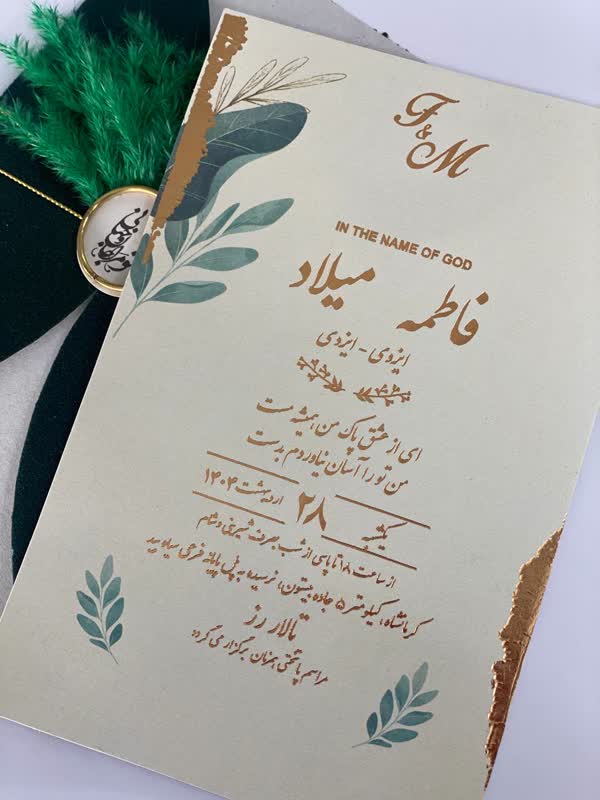 F
&
M
IN THE NAME OF GOD
فاطمه میلاد
ایزدی - ایزدی
ای از عشق پاک من همیشه مست
من تو را آسان نیاوردم بدست
یکشنبه ۲۸ اردیبهشت ۱۴۰۴
از ساعت ۱۸ تا پاسی از شب بصرف شیرینی و شام
کرمانشاه، کیلومتر ۵ جاده بیستون، نرسیده به پل پایانه فرعی سیاه بید
تالار رز
مراسم پاتختی همزمان برگزار می گردد